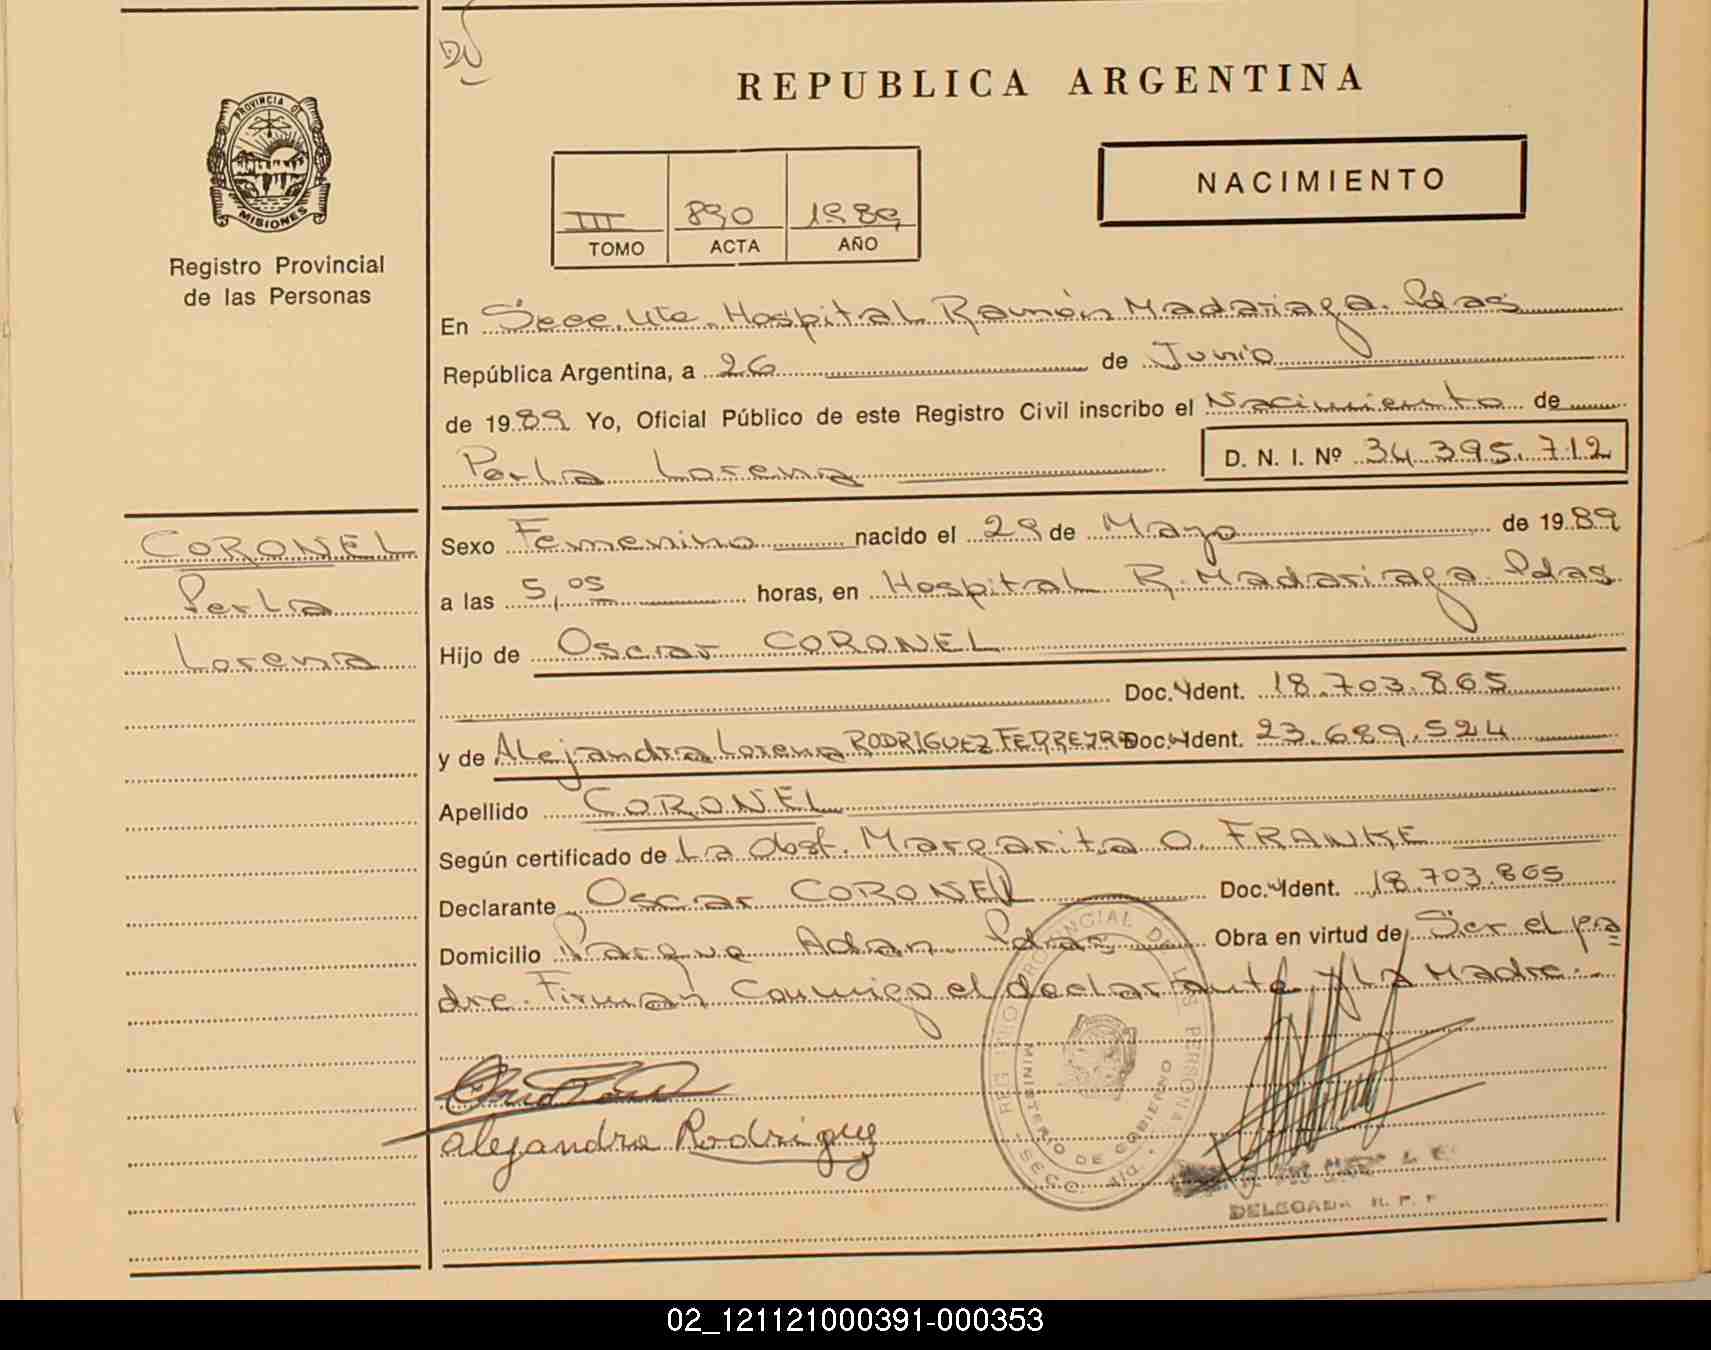 REPUBLICA ARGENTINA
PROVINCIA DE
MISIONES
Registro Provincial
de las Personas
NACIMIENTO
III 890 1989
TOMO ACTA AÑO
En Secc. Hospital Ramón Madariaga. Pdas
República Argentina, a 26 de Junio
de 1989 Yo, Oficial Público de este Registro Civil inscribo el Nacimiento de
Perla Lorena D. N. I. Nº 34.395.712
CORONEL
Perla
Lorena
Sexo Femenino nacido el 29 de Mayo de 1989
a las 5,05 horas, en Hospital R. Madariaga Pdas
Hijo de Oscar CORONEL
Doc. Ident. 18.703.865
y de Alejandra Lorena RODRIGUEZ FERREYRA Doc. Ident. 23.689.524
Apellido CORONEL
Según certificado de La obst. Margarita O. FRANKE
Declarante Oscar CORONEL Doc. Ident. 18.703.865
Domicilio Parque Adan Pdas Obra en virtud de Ser el pa
dre. Firman Conmigo el declarante y la Madre.
MINISTERIO DE GOBIERNO
Alejandra Rodriguez
DELEGADA R. P. P
02_121121000391-000353